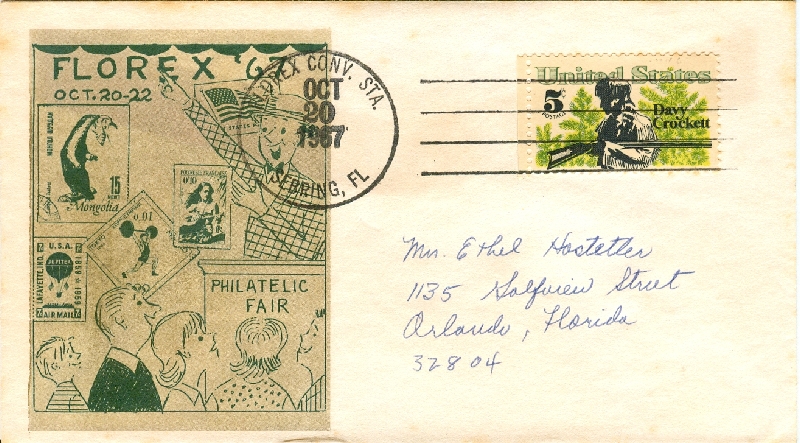 FLOREX '67
OCT. 20-22
15
Mongolia
0.01
U.S.A.
JUPITER
LAFAYETTE, IND.
1859 1959
AIR MAIL
PHILATELIC
FAIR
CONV. STA.
OCT
20
1967
SEBRING, FL
United States
5¢
POSTAGE
Davy
Crockett
Mrs. Ethel Hostetler
1135 Golfview Street
Orlando, Florida
32804